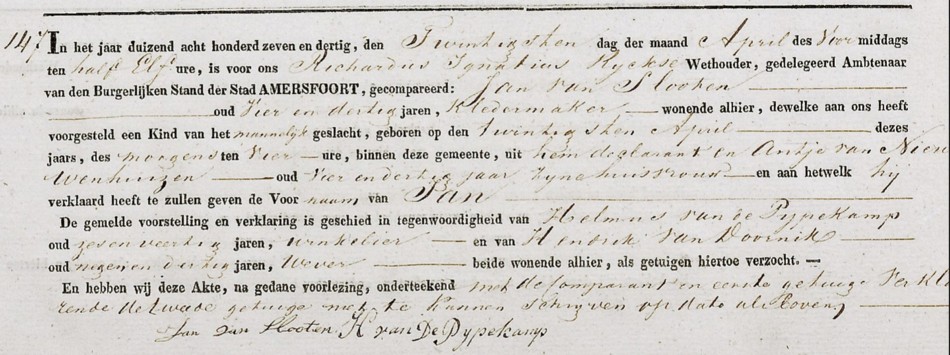 147 In het jaar duizend acht honderd zeven en dertig, den Twintigsten dag der maand April des Voor middags
ten half Elf ure, is voor ons Richardus Ignatius Ryckse Wethouder, gedelegeerd Ambtenaar
van den Burgerlijken Stand der Stad AMERSFOORT, gecompareerd: Jan van Slooten
oud Vier en dertig jaren, Kledermaker wonende alhier, dewelke aan ons heeft
voorgesteld een Kind van het mannelijk geslacht, geboren op den twintigsten April dezes
jaars, des morgens ten Vier ure, binnen deze gemeente, uit hem declarant en Antje van Nieu
wenhuizen oud Vier en dertig jaar Zyne huisvrouw en aan hetwelk hy
verklaard heeft te zullen geven de Voor naam van Jan
De gemelde voorstelling en verklaring is geschied in tegenwoordigheid van Helmus van de Pypekamp
oud zesenveertig jaren, Winkelier en van Hendrik van Doornik
oud negen en dertig jaren, Wever beide wonende alhier, als getuigen hiertoe verzocht. —
En hebben wij deze Akte, na gedane voorlezing, onderteekend met de Comparant en eerste getuige Verkla
rende de twede getuige niet te kunnen schryven op dato als Boven,
Jan van Slooten H van De Pypekamp